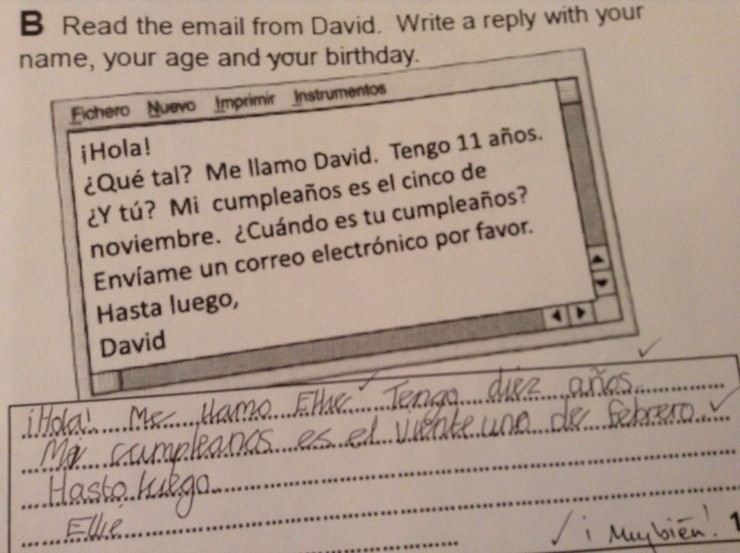 B Read the email from David. Write a reply with your
name, your age and your birthday.
Fichero Nuevo Imprimir Instrumentos
¡Hola!
¿Qué tal? Me llamo David. Tengo 11 años.
¿Y tú? Mi cumpleaños es el cinco de
noviembre. ¿Cuándo es tu cumpleaños?
Envíame un correo electrónico por favor.
Hasta luego,
David
¡Hola! Me llamo Ellie Tengo diez años.
Mi cumpleanos es el viente uno de febrero
Hasto luego
Ellie
¡Muy bién! 1